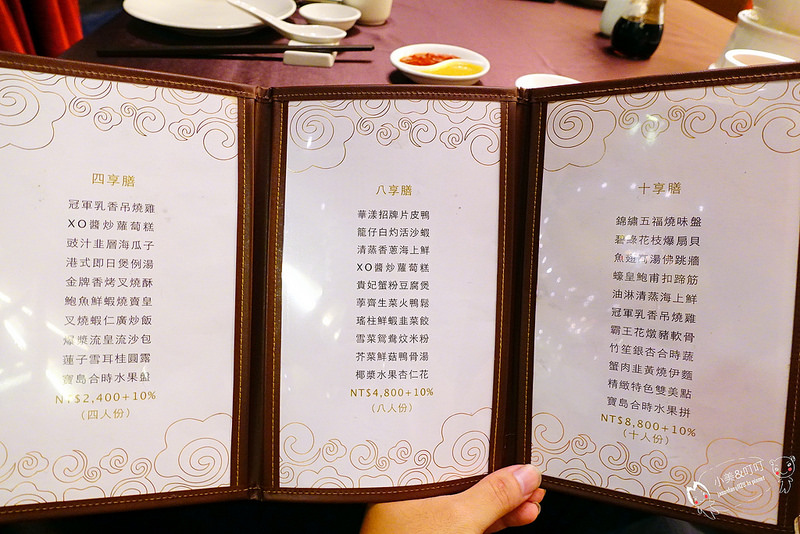 四享膳
冠軍乳香吊燒雞
XO醬炒蘿蔔糕
豉汁韭層海瓜子
港式即日煲例湯
金牌香烤叉燒酥
鮑魚鮮蝦燒賣皇
叉燒蝦仁廣炒飯
爆漿流皇流沙包
蓮子雪耳桂圓露
寶島合時水果盤
NT$2,400+10%
(四人份)
八享膳
華漾招牌片皮鴨
籠仔白灼活沙蝦
清蒸香蔥海上鮮
XO醬炒蘿蔔糕
貴妃蟹粉豆腐煲
荸薺生菜火鴨鬆
瑤柱鮮蝦韭菜餃
雪菜鴛鴦炆米粉
芥菜鮮菇鴨骨湯
椰漿水果杏仁花
NT$4,800+10%
(八人份)
十享膳
錦繡五福燒味盤
碧綠花枝爆扇貝
魚翅高湯佛跳牆
蠔皇鮑甫扣蹄筋
油淋清蒸海上鮮
冠軍乳香吊燒雞
霸王花燉豬軟骨
竹笙銀杏合時蔬
蟹肉韭黃燒伊麵
精緻特色雙美點
寶島合時水果拼
NT$8,800+10%
(十人份)
小美&叮叮